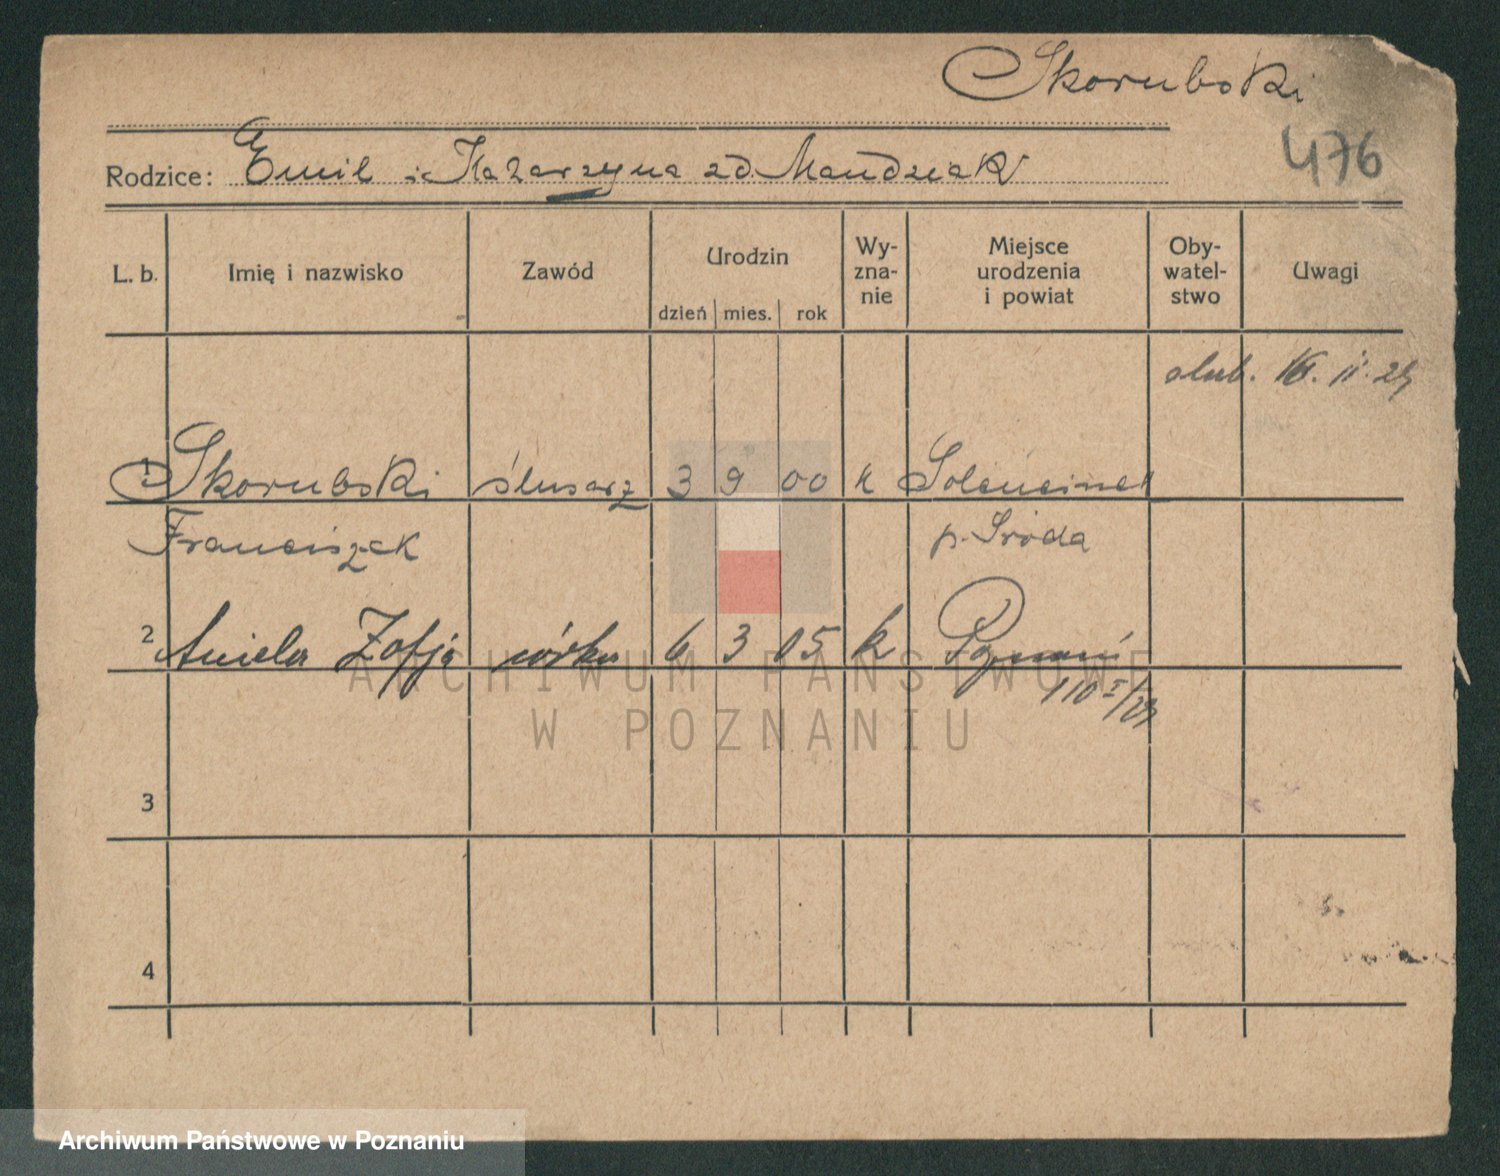 Skorubski
476
Rodzice: Emil i Katarzyna zd. Mandziak
L. b. Imię i nazwisko Zawód Urodzin dzień mies. rok Wy-zna-nie Miejsce urodzenia i powiat Oby-watel-stwo Uwagi
slub. 16. II. 29
1 Skorubski ślusarz 3 9 00 k Soleucinek
Franciszek p. Środa
2 Aniela Zofja córka 6 3 05 k Poznań
110 I/29
3
4
ARCHIWUM PAŃSTWOWE
W POZNANIU
Archiwum Państwowe w Poznaniu